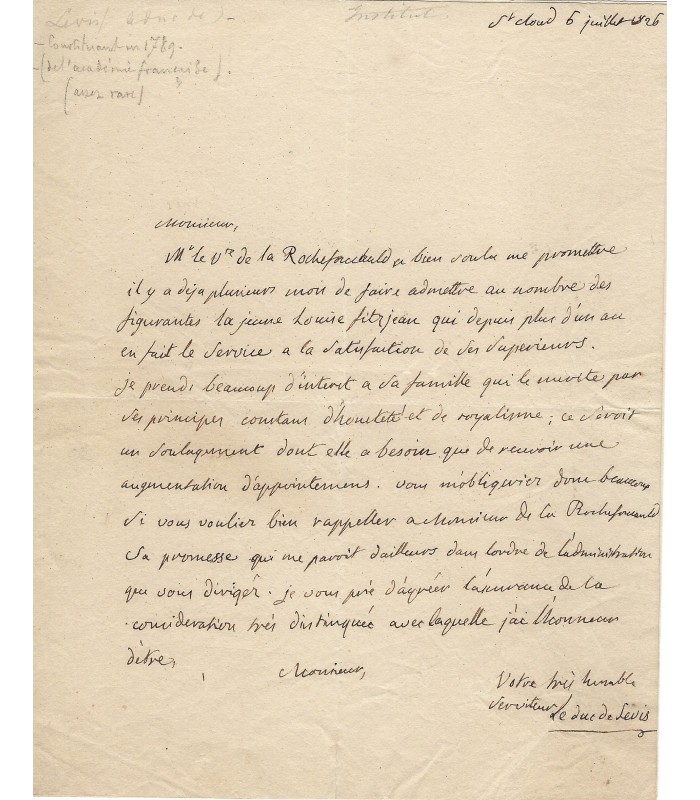 Levis (duc de)
Institut.
St cloud 6 juillet 1826
- Constituant en 1789 -
- (de l'académie française).
(assez rare)
Monsieur,
Mr le Vte de la Rochefoucauld a bien voulu me promettre
il y a deja plusieurs mois de faire admettre au nombre des
figurantes la jeune Louise fitzjean qui depuis plus d'un an
en fait le service a la satisfaction de ses superieurs.
je prends beaucoup d'interet a sa famille qui le merite par
ses principes constans d'honeteté et de royalisme; ce seroit
un soulagement dont elle a besoin que de recevoir une
augmentation d'appointemens. vous m'obligeriez donc beaucoup
si vous vouliez bien rappeller a Monsieur de la Rochefoucauld
sa promesse qui me paroit d'ailleurs dans l'ordre de l'administration
que vous dirigés. je vous prie d'agréer l'assurance de la
consideration très distinguée avec laquelle j'ai l'honneur
d'être,
Monsieur,
Votre très humble
serviteur
Le duc de Lévis